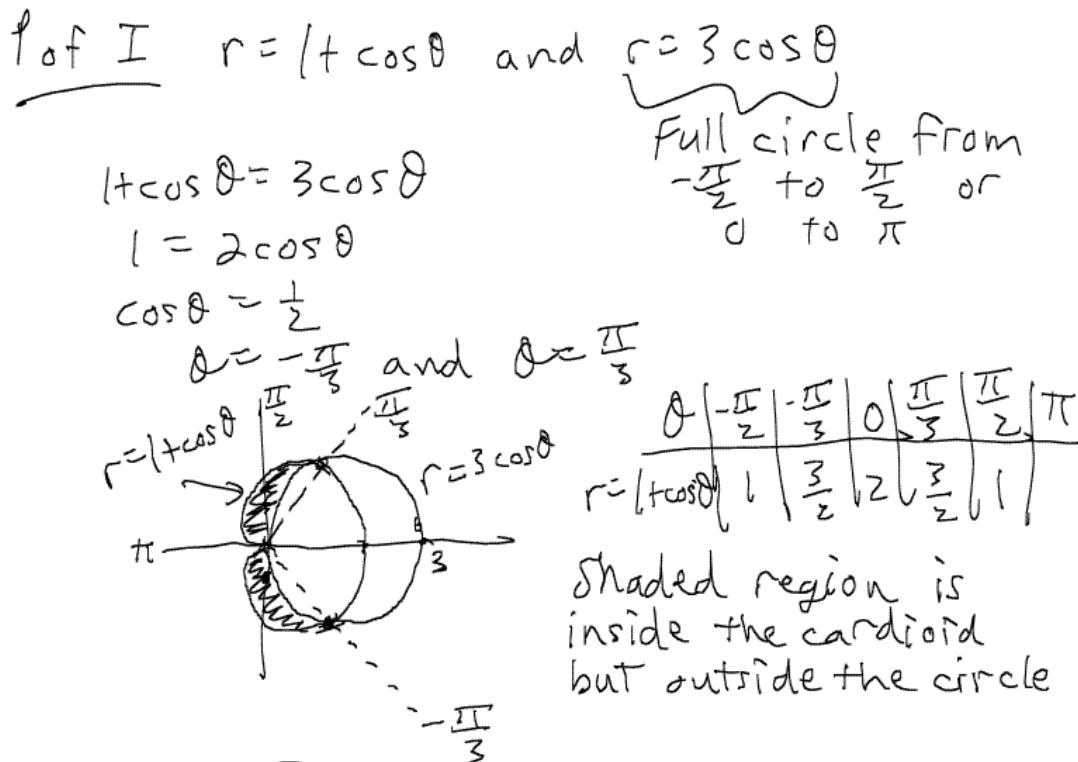 P of I r = 1 + cosθ and r = 3 cosθ
Full circle from
-π/2 to π/2 or
0 to π
1+cosθ = 3cosθ
1 = 2cosθ
cosθ = 1/2
θ = -π/3 and θ = π/3
π/2
π/3
r=1+cosθ
r=3cosθ
π
3
-π/3
θ | -π/2 | -π/3 | 0 | π/3 | π/2 | π
r=1+cosθ | 1 | 3/2 | 2 | 3/2 | 1 |
Shaded region is
inside the cardioid
but outside the circle